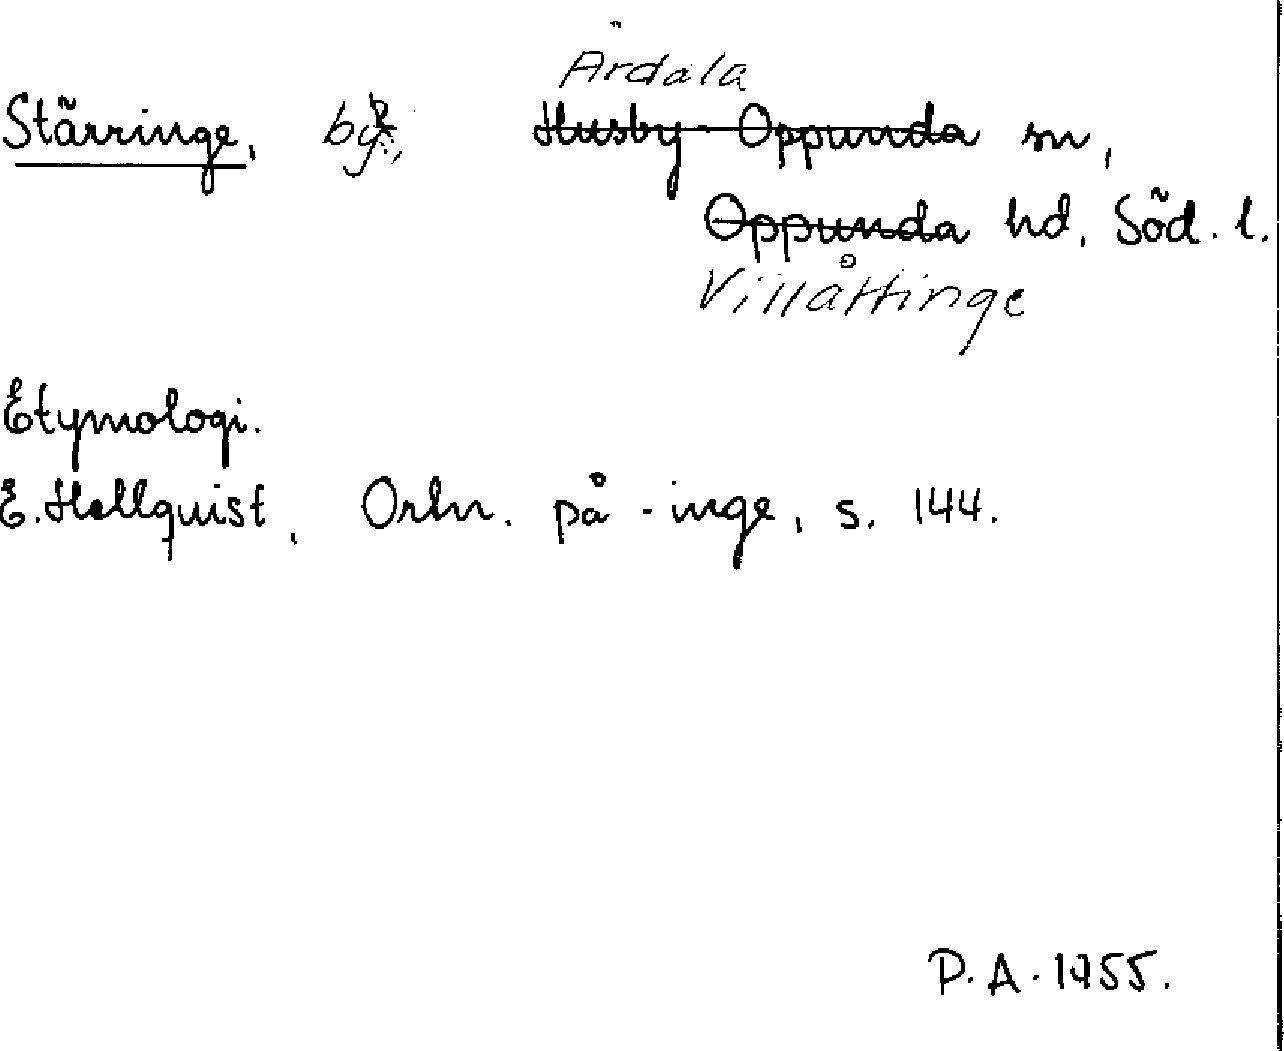 Ärdala
Stärringe, by, Husby-Oppunda sn,
Oppunda hd, Söd. l.
Villåttinge
Etymologi.
E. Hellquist, Ortn. på -inge, s. 144.
P.A. 1955.